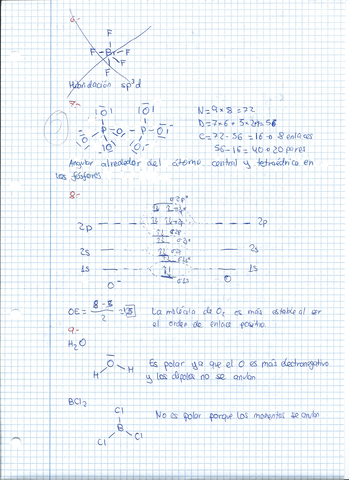 6.-
F
F - Br - F
F
F
F
Hibridación sp³d
7.-
N = 9 x 8 = 72
P - O - P
D = 7x6 + 5x2 + 4 = 56
C = 72 - 56 = 16 → 8 enlaces
56 - 16 = 40 → 20 pares
Angular alrededor del átomo central y tetraédrica en
los fósforos
8.-
2p 2p
2s 2s
1s 1s
O⁻ O
OE = 8 - 5 / 2 = 1,5 La molécula de O₂ es más estable al ser
el orden de enlace positivo.
9.-
H₂O
O
H H
Es polar ya que el O es más electronegativo
y los dipolos no se anulan
BCl₃
No es polar porque los momentos se anulan
Cl
B
Cl Cl